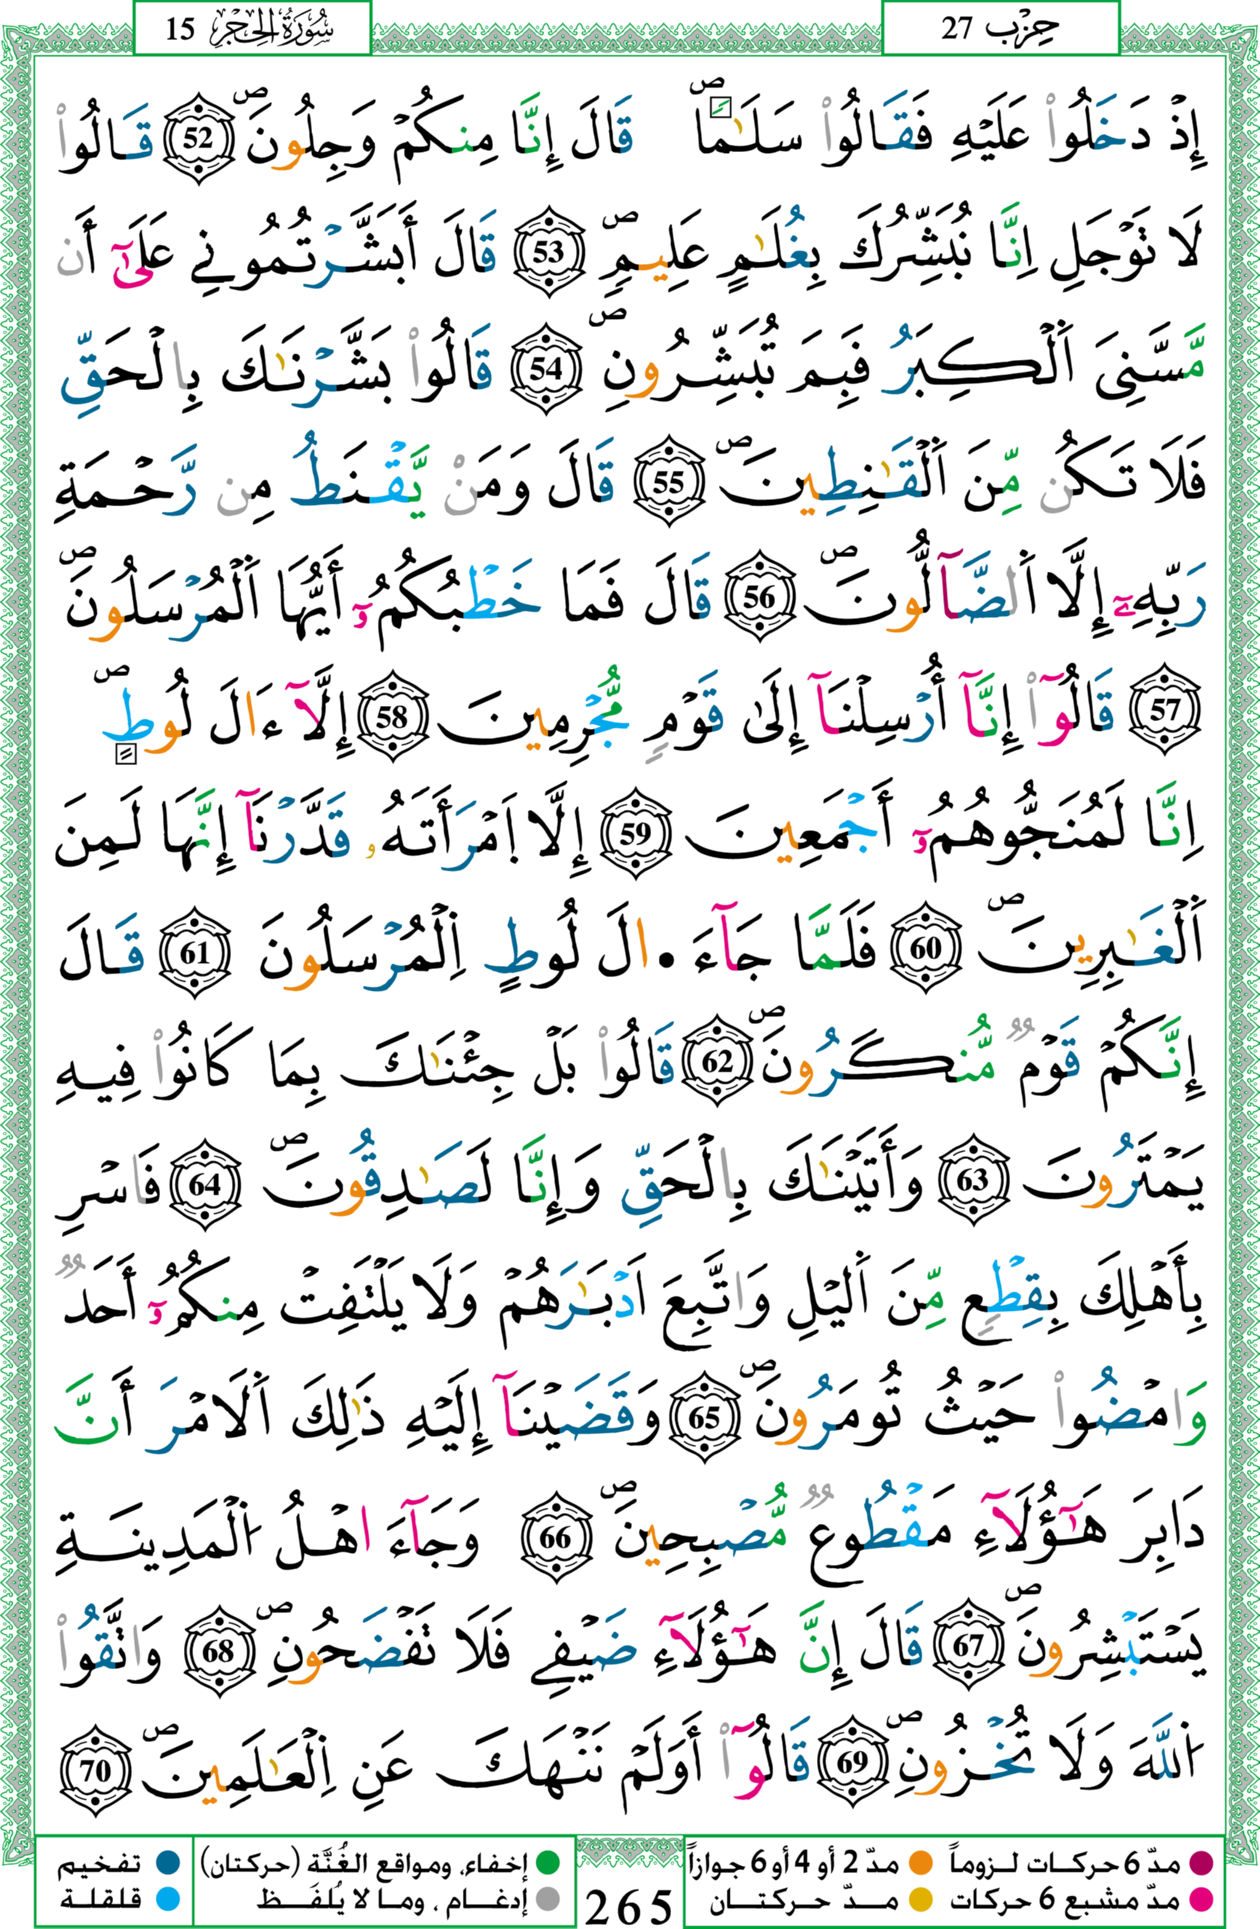 حِزْب 27
سُورَةُ الحِجْرِ 15
إِذْ دَخَلُواْ عَلَيْهِ فَقَالُواْ سَلَٰماًۖ قَالَ إِنَّا مِنكُمْ وَجِلُونَۖ 52 قَالُواْ
لَا تَوْجَلِ اِنَّا نُبَشِّرُكَ بِغُلَٰمٍ عَلِيمٍۖ 53 قَالَ أَبَشَّرْتُمُونِے عَلَىٰٓ أَن
مَّسَّنِىَ اَ۬لْكِبَرُ فَبِمَ تُبَشِّرُونِۖ 54 قَالُواْ بَشَّرْنَٰكَ بِالْحَقِّ
فَلَا تَكُن مِّنَ اَ۬لْقَٰنِطِينَۖ 55 قَالَ وَمَنْ يَّقْنَطُ مِن رَّحْمَةِ
رَبِّهِۦٓ إِلَّا اَ۬لضَّآلُّونَۖ 56 قَالَ فَمَا خَطْبُكُمُۥٓ أَيُّهَا اَ۬لْمُرْسَلُونَۖ
57 قَالُوٓاْ إِنَّآ أُرْسِلْنَآ إِلَىٰ قَوْمٍ مُّجْرِمِينَ 58 إِلَّآ ءَالَ لُوطٍۖ
اِنَّا لَمُنَجُّوهُمُۥٓ أَجْمَعِينَ 59 إِلَّا اَ۪مْرَأَتَهُۥ قَدَّرْنَآ إِنَّهَا لَمِنَ
اَ۬لْغَٰبِرِينَۖ 60 فَلَمَّا جَآءَ • الَ لُوطٍ اِ۬لْمُرْسَلُونَ 61 قَالَ
إِنَّكُمْ قَوْمٌ مُّنكَرُونَۖ 62 قَالُواْ بَلْ جِئْنَٰكَ بِمَا كَانُواْ فِيهِ
يَمْتَرُونَ 63 وَأَتَيْنَٰكَ بِالْحَقِّ وَإِنَّا لَصَٰدِقُونَۖ 64 فَاسْرِ
بِأَهْلِكَ بِقِطْعٍ مِّنَ اَ۬ليْلِ وَاتَّبِعَ اَدْبَٰرَهُمْ وَلَا يَلْتَفِتْ مِنكُمُۥٓ أَحَدٌ
وَامْضُواْ حَيْثُ تُومَرُونَۖ 65 وَقَضَيْنَآ إِلَيْهِ ذَٰلِكَ اَ۬لَامْرَ أَنَّ
دَابِرَ هَٰٓؤُلَآءِ مَقْطُوعٌ مُّصْبِحِينَۖ 66 وَجَآءَ اهْلُ اُ۬لْمَدِينَةِ
يَسْتَبْشِرُونَۖ 67 قَالَ إِنَّ هَٰٓؤُلَآءِ ضَيْفِے فَلَا تَفْضَحُونِۖ 68 وَاتَّقُواْ
اُ۬للَّهَ وَلَا تُخْزُونِۖ 69 قَالُوٓاْ أَوَلَمْ نَنْهَكَ عَنِ اِ۬لْعَٰلَمِينَۖ 70
مدّ 6 حركات لـزوماً
مدّ 2 أو 4 أو 6 جوازاً
إخفاء، ومواقع الغُنَّة (حركتان)
تفخيم
مدّ مشبع 6 حركات
مـدّ حـركتـان
265
إدغـام ، ومـا لا يُلفَـظ
قلقلة